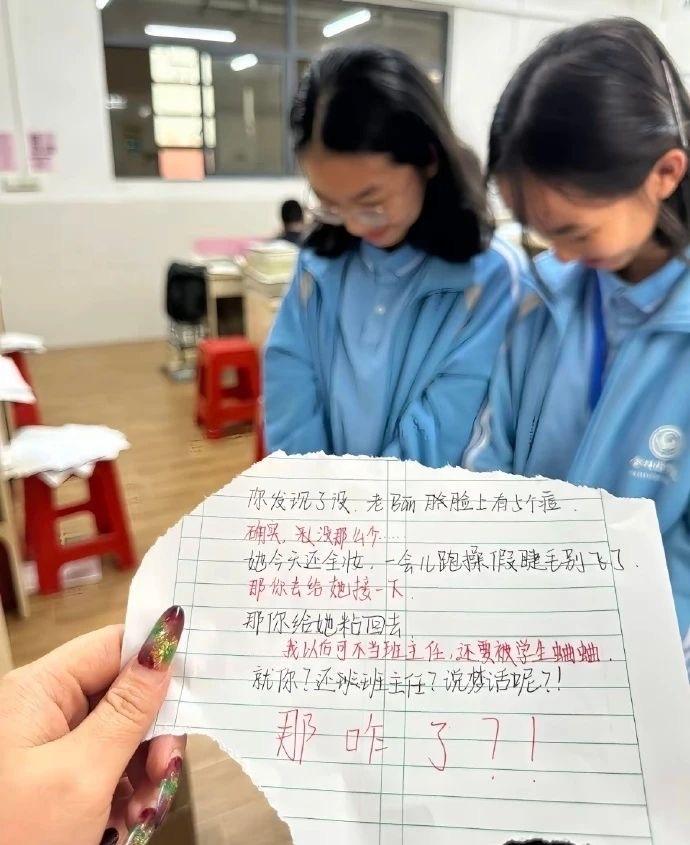 你发现了没,老 脸上有5个痘.
确实,我没那么个……
她今天还全妆,一会儿跑操假睫毛别飞了.
那你去给她接一下.
那你给她粘回去
我以后可不当班主任,还要被学生蛐蛐.
就你?还班班主任?说梦话呢?!
那咋了?!